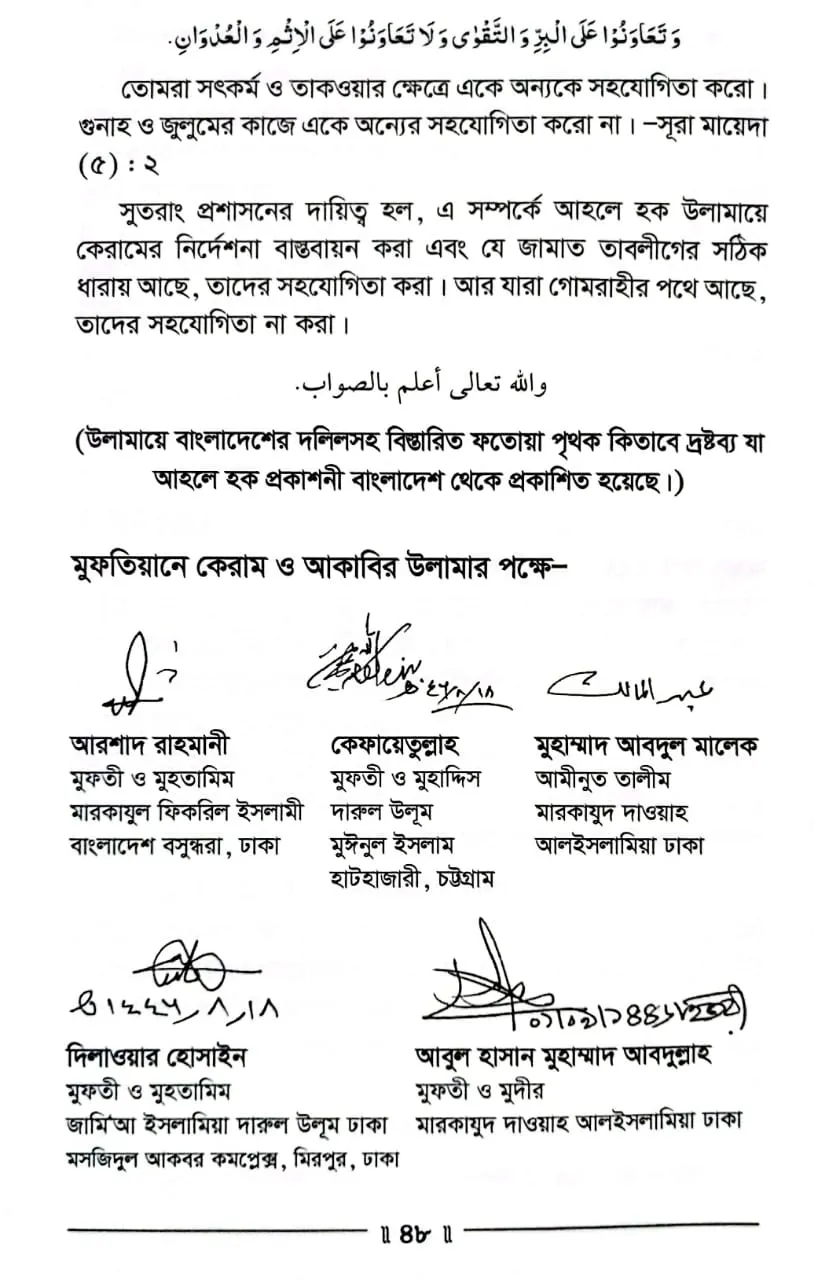 وَ تَعَاوَنُوْا عَلَى الْبِرِّ وَ التَّقْوٰى وَ لَا تَعَاوَنُوْا عَلَى الْاِثْمِ وَ الْعُدْوَانِ.
তোমরা সৎকর্ম ও তাকওয়ার ক্ষেত্রে একে অন্যকে সহযোগিতা করো।
গুনাহ ও জুলুমের কাজে একে অন্যের সহযোগিতা করো না। –সূরা মায়েদা
(৫) : ২
সুতরাং প্রশাসনের দায়িত্ব হল, এ সম্পর্কে আহলে হক উলামায়ে
কেরামের নির্দেশনা বাস্তবায়ন করা এবং যে জামাত তাবলীগের সঠিক
ধারায় আছে, তাদের সহযোগিতা করা। আর যারা গোমরাহীর পথে আছে,
তাদের সহযোগিতা না করা।
والله تعالى أعلم بالصواب.
(উলামায়ে বাংলাদেশের দলিলসহ বিস্তারিত ফতোয়া পৃথক কিতাবে দ্রষ্টব্য যা
আহলে হক প্রকাশনী বাংলাদেশ থেকে প্রকাশিত হয়েছে।)
মুফতিয়ানে কেরাম ও আকাবির উলামার পক্ষে–
عبد المالك
আরশাদ রাহমানী
মুফতী ও মুহতামিম
মারকাযুল ফিকরিল ইসলামী
বাংলাদেশ বসুন্ধরা, ঢাকা
কেফায়েতুল্লাহ
মুফতী ও মুহাদ্দিস
দারুল উলূম
মুঈনুল ইসলাম
হাটহাজারী, চট্টগ্রাম
মুহাম্মাদ আবদুল মালেক
আমীনুত তালীম
মারকাযুদ দাওয়াহ
আলইসলামিয়া ঢাকা
দিলাওয়ার হোসাইন
মুফতী ও মুহতামিম
জামি'আ ইসলামিয়া দারুল উলূম ঢাকা
মসজিদুল আকবর কমপ্লেক্স, মিরপুর, ঢাকা
আবুল হাসান মুহাম্মাদ আবদুল্লাহ
মুফতী ও মুদীর
মারকাযুদ দাওয়াহ আলইসলামিয়া ঢাকা
॥ ৪৮ ॥